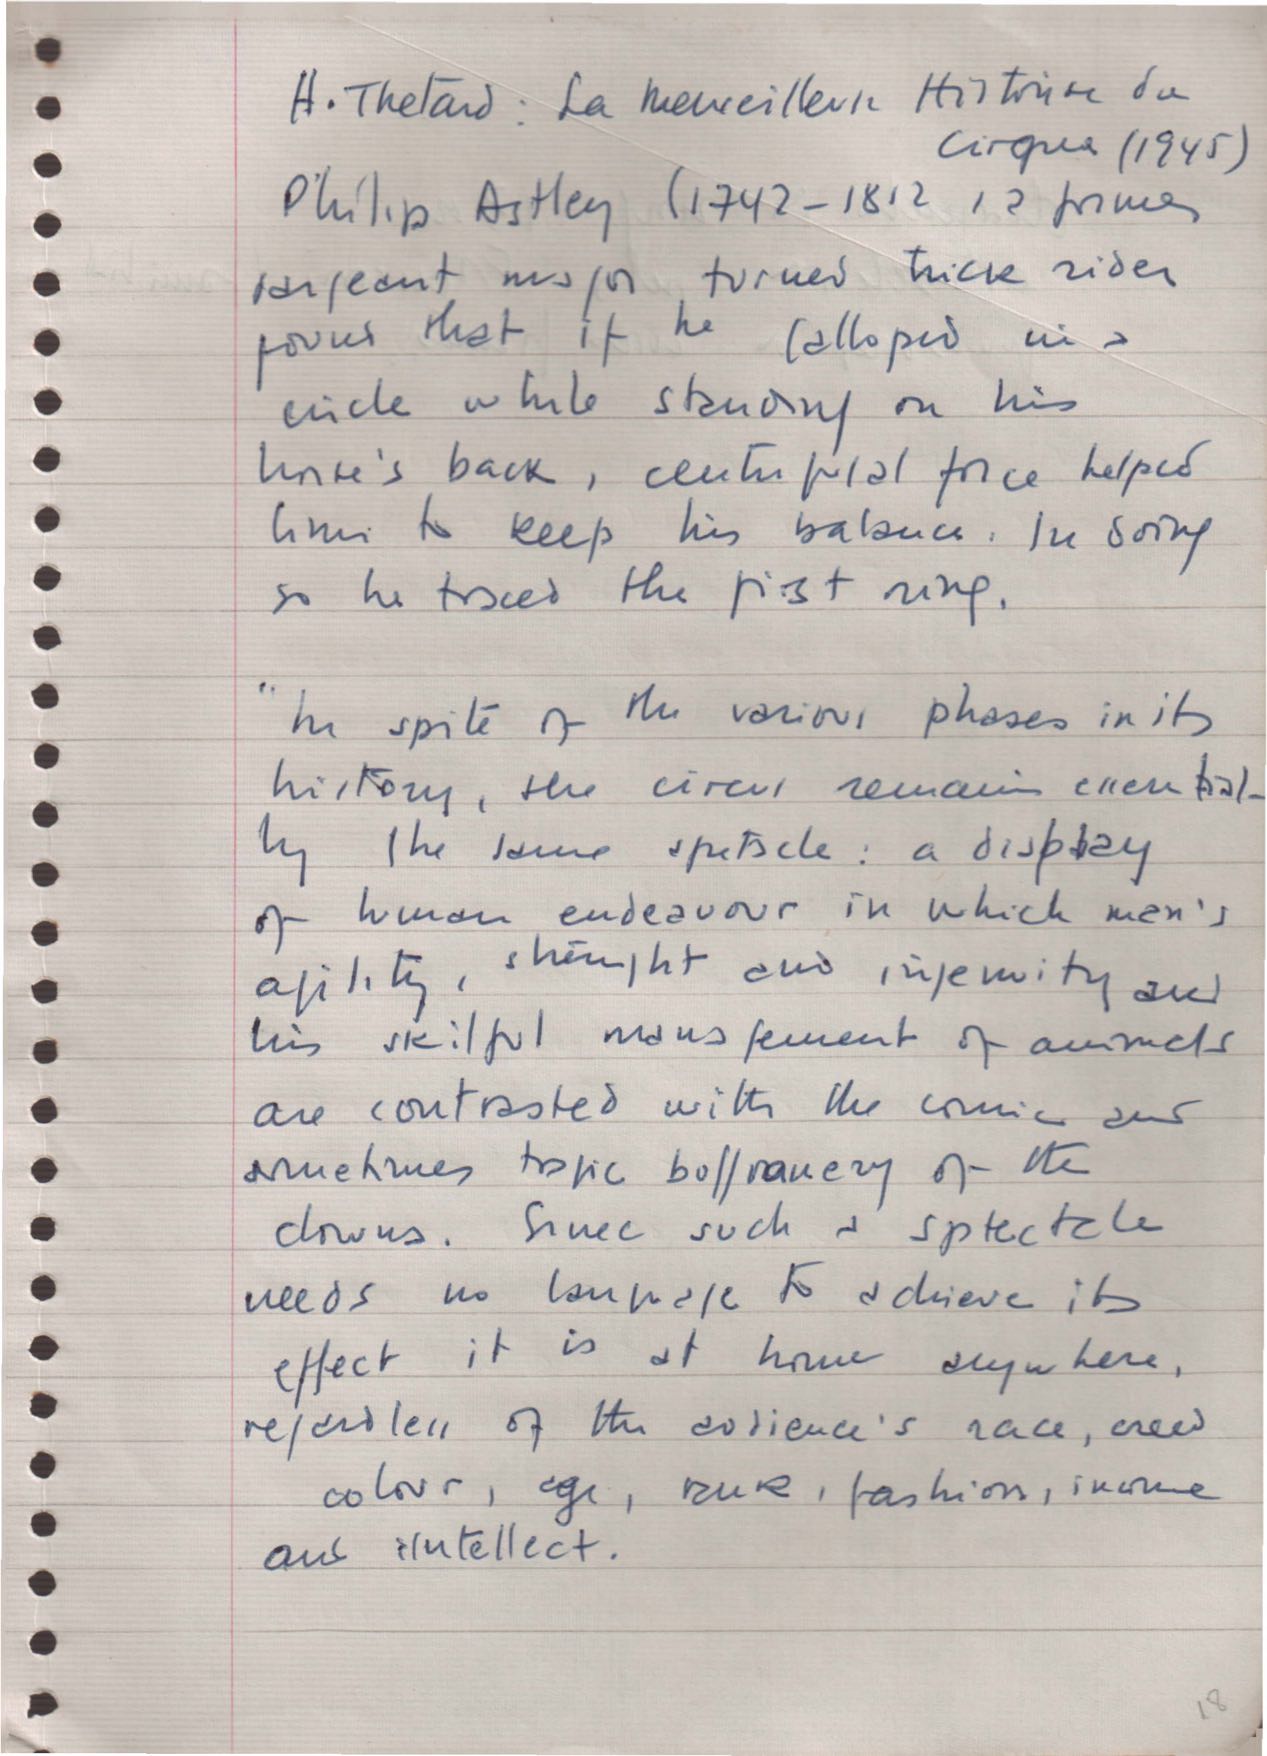 H. Thetard: La Merveilleuse Histoire du
Cirque (1945)
Philip Astley (1742-1812 ) a former
sargeant major turned trick rider
found that if he galloped in a
circle while standing on his
horse's back, centrifugal force helped
him to keep his balance. In doing
so he traced the first ring.
"In spite of the various phases in its
history, the circus remains essential-
ly the same spectacle: a display
of human endeavour in which man's
agility, strenght and ingenuity and
his skilful management of animals
are contrasted with the comic and
sometimes tragic boffoonery of the
clowns. Since such a sptectcle
needs no language to achieve its
effect it is at home anywhere,
regardless of the audience's race, creed
colour, age, rank, fashion, income
and intellect.
18